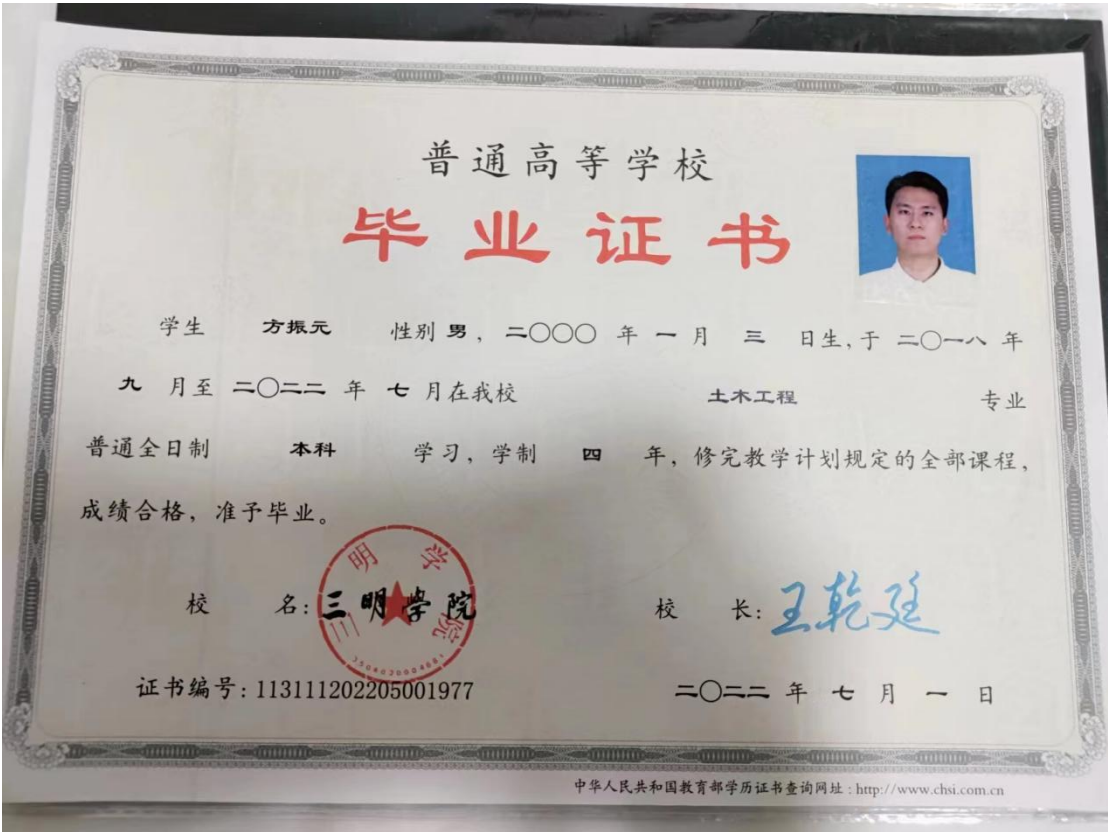 普通高等学校
毕业证书
学生 方振元 性别 男，二〇〇〇 年 一 月 三 日生，于 二〇一八 年
九 月至 二〇二二 年 七 月在我校 土木工程 专业
普通全日制 本科 学习，学制 四 年，修完教学计划规定的全部课程，
成绩合格，准予毕业。
校 名：三明学院
三明学院
3504030004681
校 长：王乾廷
证书编号：113111202205001977
二〇二二 年 七 月 一 日
中华人民共和国教育部学历证书查询网址：http://www.chsi.com.cn